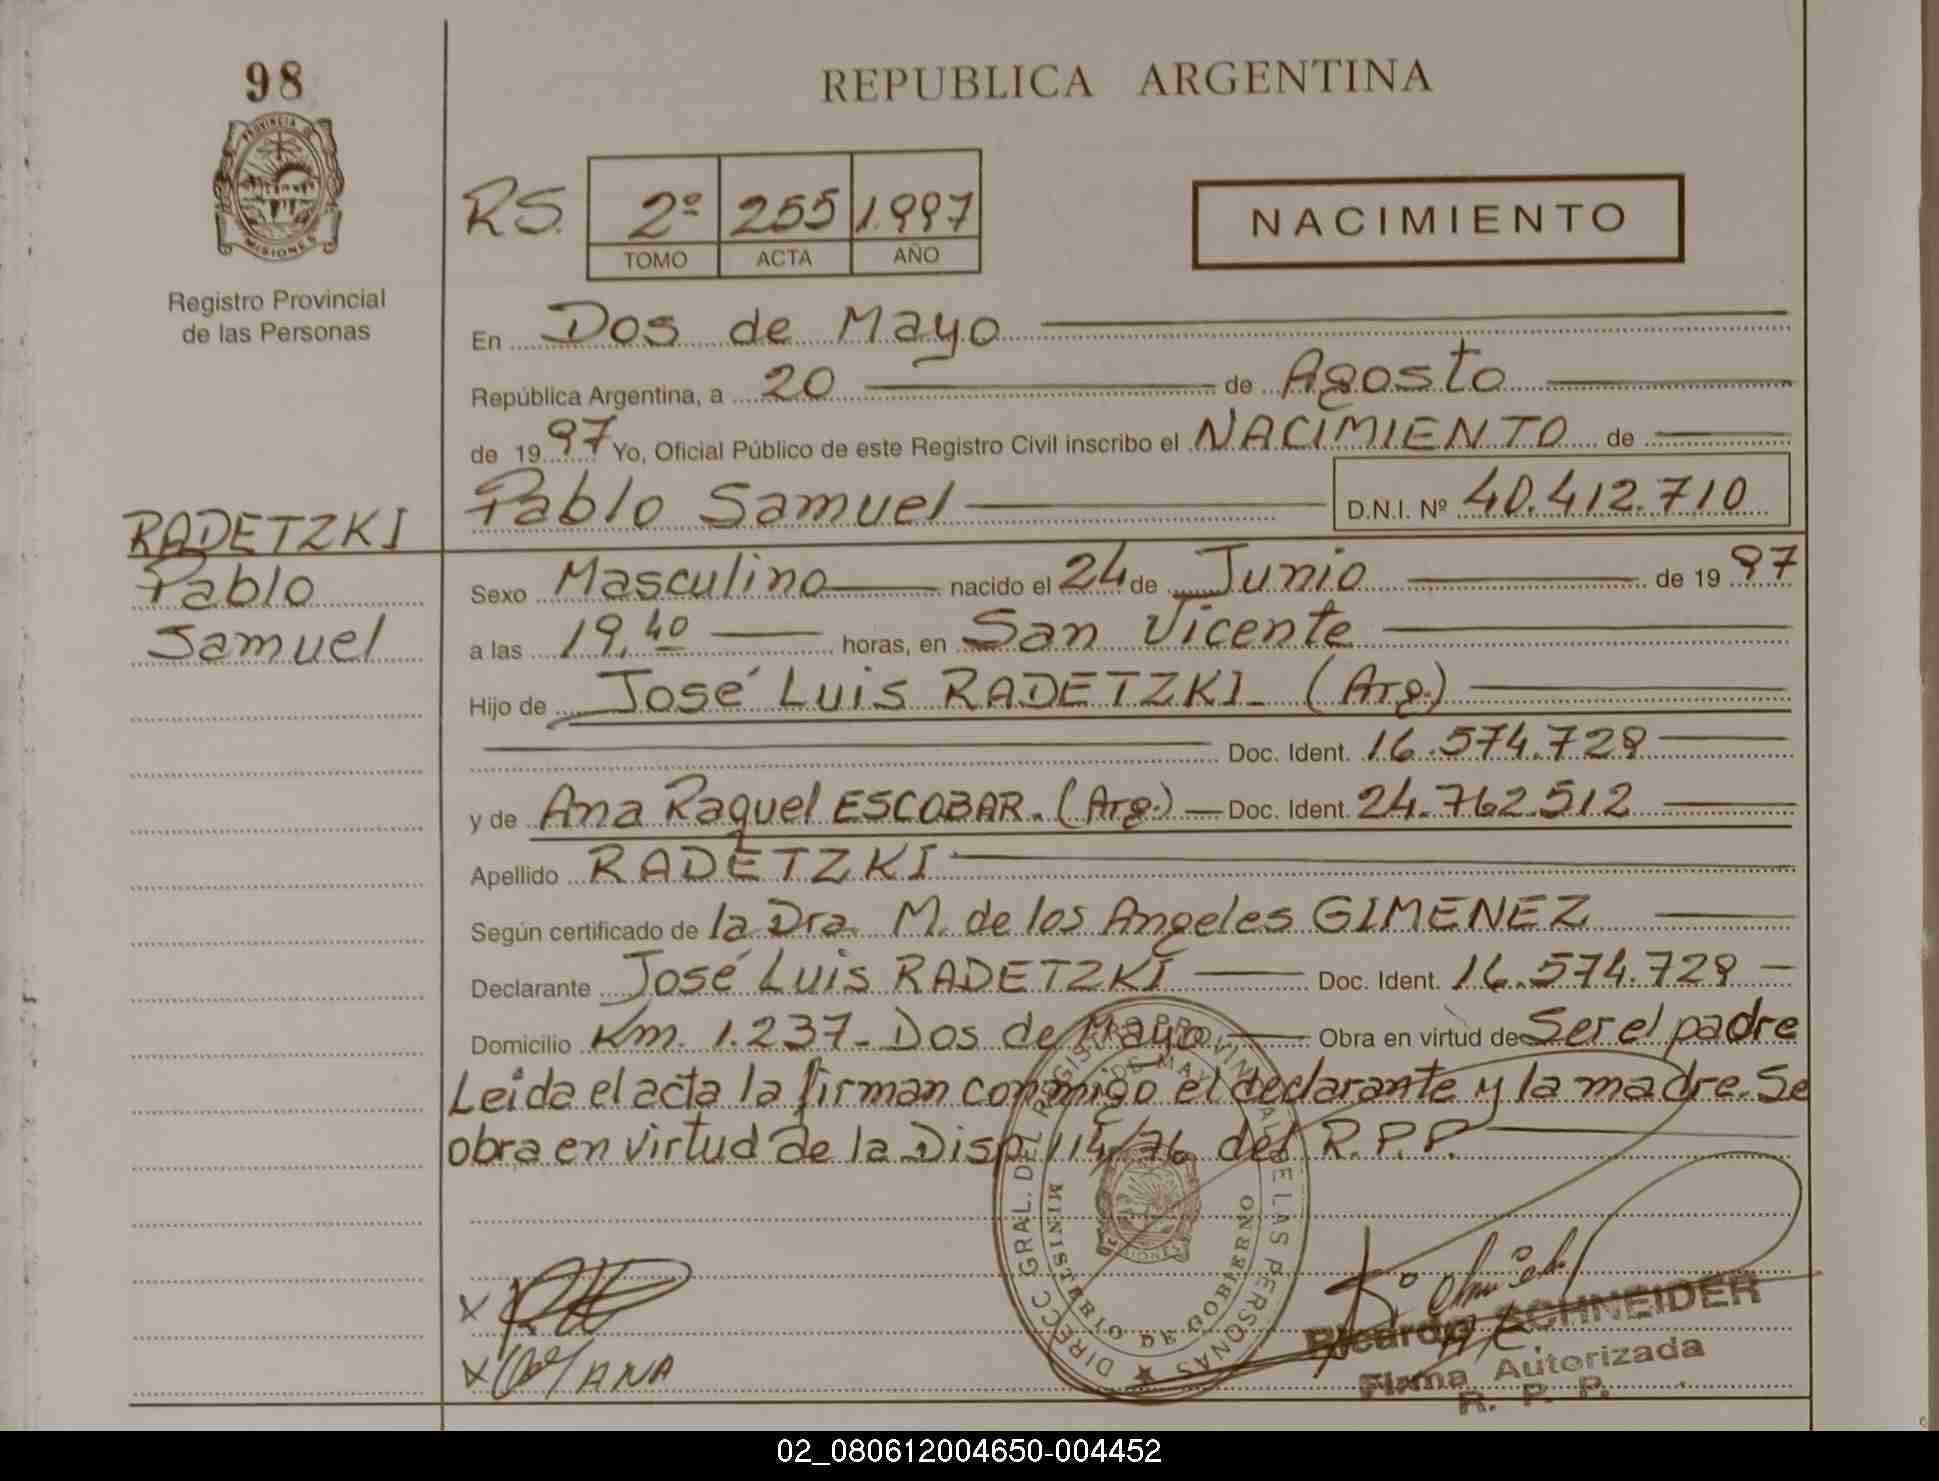 98
PROVINCIA DE
MISIONES
Registro Provincial
de las Personas
RADETZKI
Pablo
Samuel
REPUBLICA ARGENTINA
RS. 2º 255 1.997
TOMO ACTA AÑO
NACIMIENTO
En Dos de Mayo
República Argentina, a 20 de Agosto
de 1997 Yo, Oficial Público de este Registro Civil inscribo el NACIMIENTO de
Pablo Samuel D.N.I. Nº 40.412.710
Sexo Masculino nacido el 24 de Junio de 1997
a las 19,40 horas, en San Vicente
Hijo de José Luis RADETZKI_ (Arg.)
Doc. Ident. 16.574.728
y de Ana Raquel ESCOBAR. (Arg.) Doc. Ident. 24.762.512
Apellido RADETZKI
Según certificado de la Dra. M. de los Angeles GIMENEZ
Declarante José Luis RADETZKI Doc. Ident. 16.574.728
Domicilio Km. 1.237- Dos de Mayo Obra en virtud de Ser el padre
Leida el acta la firman conmigo el declarante y la madre. Se
obra en virtud de la Disp. 114/76 del R.P.P.
DIRECC GRAL. DEL REGISTRO PROVINCIAL DE LAS PERSONAS
DOS DE MAYO
MINISTERIO DE GOBIERNO
MISIONES
X
X ANA
Ricardo SCHNEIDER
Firma Autorizada
R. P. P.
02_080612004650-004452